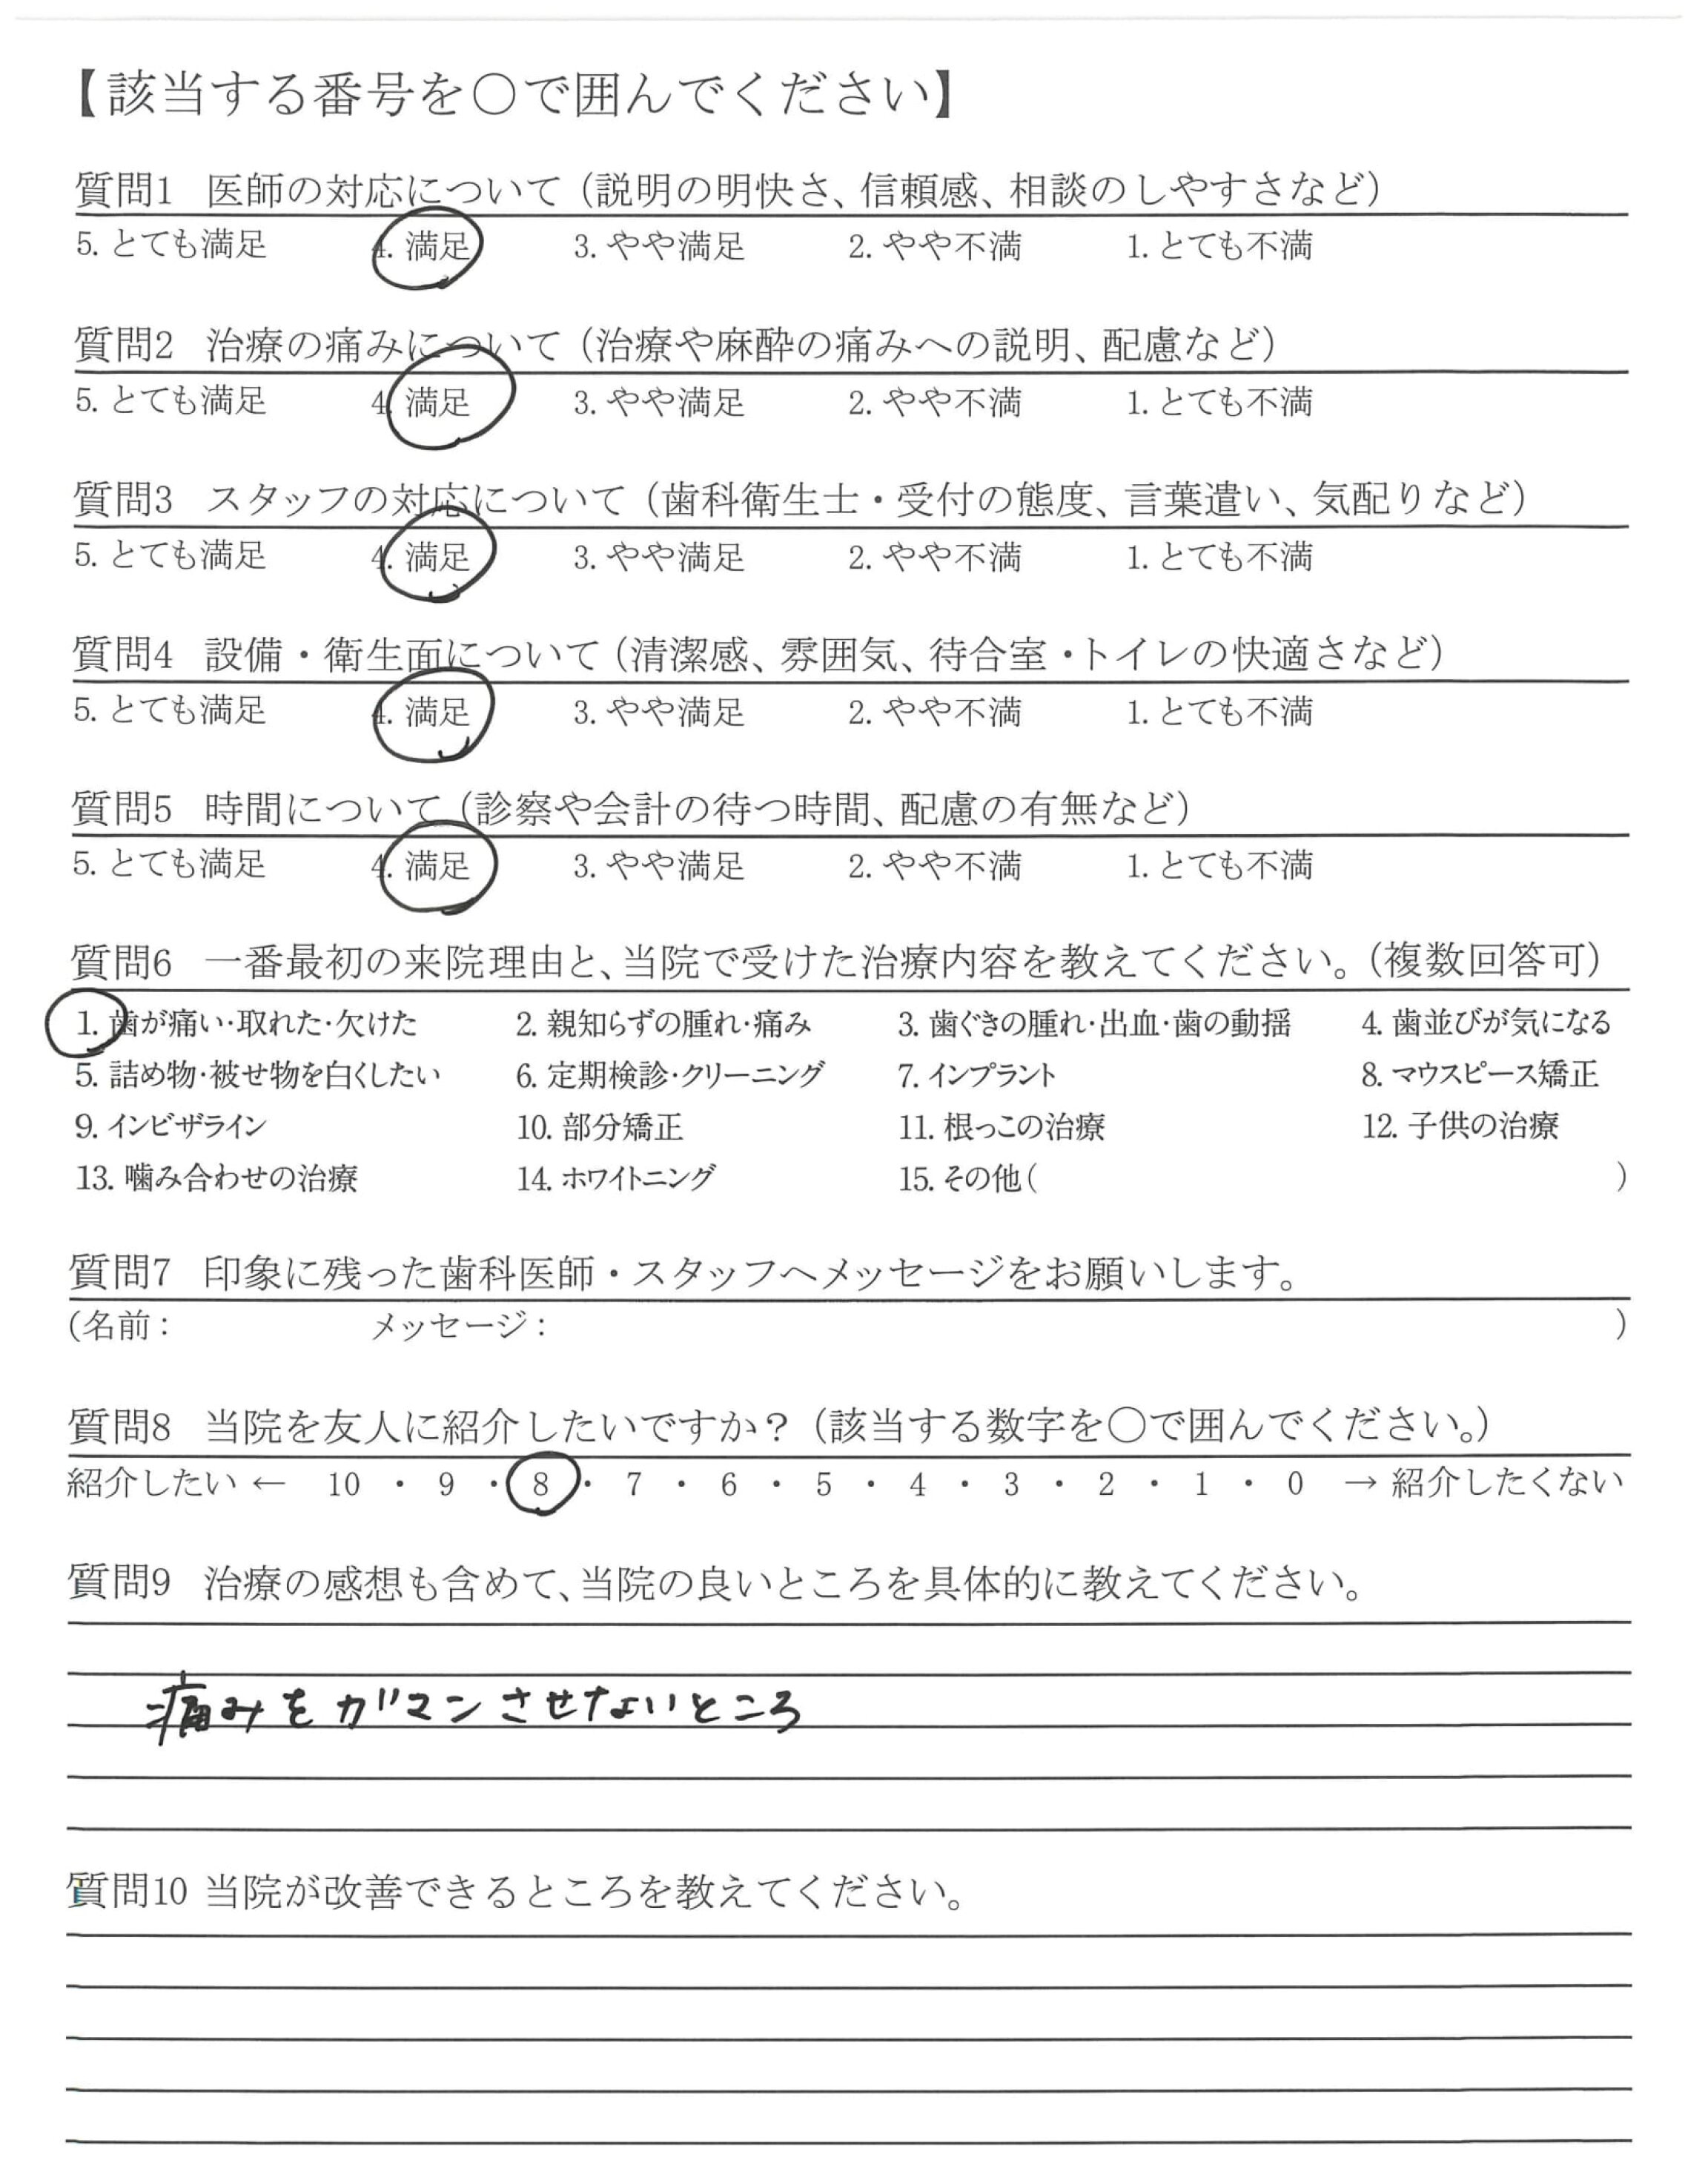 【該当する番号を〇で囲んでください】
質問1 医師の対応について（説明の明快さ、信頼感、相談のしやすさなど）
5. とても満足 4. 満足 3. やや満足 2. やや不満 1. とても不満
質問2 治療の痛みについて（治療や麻酔の痛みへの説明、配慮など）
5. とても満足 4. 満足 3. やや満足 2. やや不満 1. とても不満
質問3 スタッフの対応について（歯科衛生士・受付の態度、言葉遣い、気配りなど）
5. とても満足 4. 満足 3. やや満足 2. やや不満 1. とても不満
質問4 設備・衛生面について（清潔感、雰囲気、待合室・トイレの快適さなど）
5. とても満足 4. 満足 3. やや満足 2. やや不満 1. とても不満
質問5 時間について（診察や会計の待つ時間、配慮の有無など）
5. とても満足 4. 満足 3. やや満足 2. やや不満 1. とても不満
質問6 一番最初の来院理由と、当院で受けた治療内容を教えてください。（複数回答可）
1. 歯が痛い・取れた・欠けた 2. 親知らずの腫れ・痛み 3. 歯ぐきの腫れ・出血・歯の動揺 4. 歯並びが気になる
5. 詰め物・被せ物を白くしたい 6. 定期検診・クリーニング 7. インプラント 8. マウスピース矯正
9. インビザライン 10. 部分矯正 11. 根っこの治療 12. 子供の治療
13. 噛み合わせの治療 14. ホワイトニング 15. その他（ ）
質問7 印象に残った歯科医師・スタッフへメッセージをお願いします。
（名前： メッセージ： ）
質問8 当院を友人に紹介したいですか？（該当する数字を〇で囲んでください。）
紹介したい ← 10 ・ 9 ・ 8 ・ 7 ・ 6 ・ 5 ・ 4 ・ 3 ・ 2 ・ 1 ・ 0 → 紹介したくない
質問9 治療の感想も含めて、当院の良いところを具体的に教えてください。
痛みをガマンさせないところ
質問10 当院が改善できるところを教えてください。